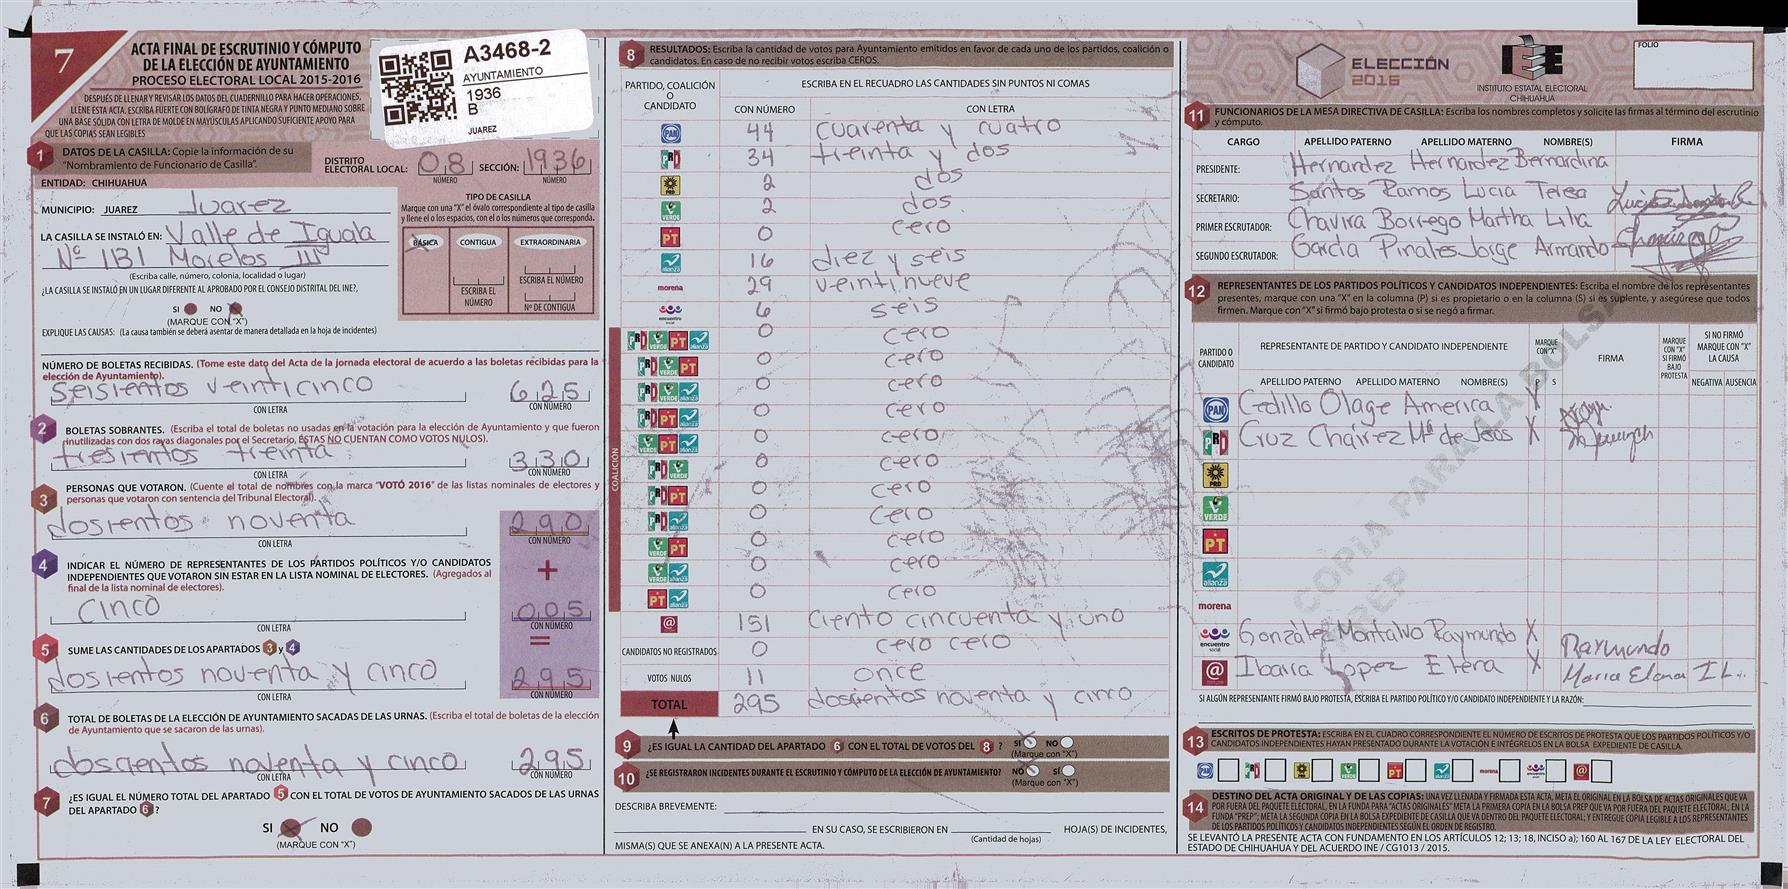 7
ACTA FINAL DE ESCRUTINIO Y CÓMPUTO
DE LA ELECCIÓN DE AYUNTAMIENTO
PROCESO ELECTORAL LOCAL 2015-2016
DESPUÉS DE LLENAR Y REVISAR LOS DATOS DEL CUADERNILLO PARA HACER OPERACIONES,
LLENE ESTA ACTA. ESCRIBA FUERTE CON BOLÍGRAFO DE TINTA NEGRA Y PUNTO MEDIANO SOBRE
UNA BASE SÓLIDA CON LETRA DE MOLDE EN MAYÚSCULAS APLICANDO SUFICIENTE APOYO PARA
QUE LAS COPIAS SEAN LEGIBLES
A3468-2
AYUNTAMIENTO
1936
B
JUAREZ
1 DATOS DE LA CASILLA: Copie la información de su
"Nombramiento de Funcionario de Casilla".
DISTRITO ELECTORAL LOCAL: 08 SECCIÓN: 1936
NÚMERO NÚMERO
ENTIDAD: CHIHUAHUA
MUNICIPIO: JUAREZ Juarez
LA CASILLA SE INSTALÓ EN: Valle de Iguala
Nº 1131 Morelos III
(Escriba calle, número, colonia, localidad o lugar)
¿LA CASILLA SE INSTALÓ EN UN LUGAR DIFERENTE AL APROBADO POR EL CONSEJO DISTRITAL DEL INE?,
SI NO X
(MARQUE CON "X")
EXPLIQUE LAS CAUSAS: (La causa también se deberá asentar de manera detallada en la hoja de incidentes)
TIPO DE CASILLA
Marque con una "X" el óvalo correspondiente al tipo de casilla
y llene el o los espacios, con el o los números que corresponda.
BÁSICA X CONTIGUA EXTRAORDINARIA
ESCRIBA EL NÚMERO ESCRIBA EL NÚMERO
Nº DE CONTIGUA
NÚMERO DE BOLETAS RECIBIDAS. (Tome este dato del Acta de la jornada electoral de acuerdo a las boletas recibidas para la
elección de Ayuntamiento).
seisientos veinticinco 625
CON LETRA CON NÚMERO
2 BOLETAS SOBRANTES. (Escriba el total de boletas no usadas en la votación para la elección de Ayuntamiento y que fueron
inutilizadas con dos rayas diagonales por el Secretario, ÉSTAS NO CUENTAN COMO VOTOS NULOS).
tresientos treinta 330
CON LETRA CON NÚMERO
3 PERSONAS QUE VOTARON. (Cuente el total de nombres con la marca "VOTÓ 2016" de las listas nominales de electores y
personas que votaron con sentencia del Tribunal Electoral).
dosientos noventa 290
CON LETRA CON NÚMERO
4 INDICAR EL NÚMERO DE REPRESENTANTES DE LOS PARTIDOS POLÍTICOS Y/O CANDIDATOS
INDEPENDIENTES QUE VOTARON SIN ESTAR EN LA LISTA NOMINAL DE ELECTORES. (Agregados al
final de la lista nominal de electores).
+
cinco 005
CON LETRA CON NÚMERO
=
5 SUME LAS CANTIDADES DE LOS APARTADOS 3 y 4
dosientos noventa y cinco 295
CON LETRA CON NÚMERO
6 TOTAL DE BOLETAS DE LA ELECCIÓN DE AYUNTAMIENTO SACADAS DE LAS URNAS. (Escriba el total de boletas de la elección
de Ayuntamiento que se sacaron de las urnas).
doscientos noventa y cinco 295
CON LETRA CON NÚMERO
7 ¿ES IGUAL EL NÚMERO TOTAL DEL APARTADO 5 CON EL TOTAL DE VOTOS DE AYUNTAMIENTO SACADOS DE LAS URNAS
DEL APARTADO 6?
SI X NO
(MARQUE CON "X")
8 RESULTADOS: Escriba la cantidad de votos para Ayuntamiento emitidos en favor de cada uno de los partidos, coalición o
candidatos. En caso de no recibir votos escriba CEROS.
PARTIDO, COALICIÓN O CANDIDATO
ESCRIBA EN EL RECUADRO LAS CANTIDADES SIN PUNTOS NI COMAS
CON NÚMERO CON LETRA
PAN 44 cuarenta y cuatro
PRD 34 treinta y dos
PRD 2 dos
VERDE 2 dos
PT 0 cero
alianza 16 diez y seis
morena 29 veintinueve
encuentro social 6 seis
COALICIÓN
VERDE PT alianza 0 cero
VERDE PT 0 cero
VERDE alianza 0 cero
PT alianza 0 cero
VERDE PT alianza 0 cero
VERDE 0 cero
PT 0 cero
alianza 0 cero
VERDE PT 0 cero
VERDE alianza 0 cero
PT alianza 0 cero
@ 151 ciento cincuenta y uno
CANDIDATOS NO REGISTRADOS 0 cero cero
VOTOS NULOS 11 once
TOTAL 295 dosientos noventa y cinco
9 ¿ES IGUAL LA CANTIDAD DEL APARTADO 6 CON EL TOTAL DE VOTOS DEL 8? SI NO
(Marque con "X")
10 ¿SE REGISTRARON INCIDENTES DURANTE EL ESCRUTINIO Y CÓMPUTO DE LA ELECCIÓN DE AYUNTAMIENTO? NO SÍ
(Marque con "X")
DESCRIBA BREVEMENTE:
EN SU CASO, SE ESCRIBIERON EN HOJA(S) DE INCIDENTES,
(Cantidad de hojas)
MISMA(S) QUE SE ANEXA(N) A LA PRESENTE ACTA.
ELECCIÓN
2016
IEE
INSTITUTO ESTATAL ELECTORAL
CHIHUAHUA
FOLIO
11 FUNCIONARIOS DE LA MESA DIRECTIVA DE CASILLA: Escriba los nombres completos y solicite las firmas al término del escrutinio
y cómputo.
CARGO APELLIDO PATERNO APELLIDO MATERNO NOMBRE(S) FIRMA
PRESIDENTE: Hernandez Hernandez Bernardina
SECRETARIO: Santos Ramos Lucia Teresa
PRIMER ESCRUTADOR: Chavira Borrego Martha Lilia
SEGUNDO ESCRUTADOR: García Pinales Jorge Armando
12 REPRESENTANTES DE LOS PARTIDOS POLÍTICOS Y CANDIDATOS INDEPENDIENTES: Escriba el nombre de los representantes
presentes, marque con una "X" en la columna (P) si es propietario o en la columna (S) si es suplente, y asegúrese que todos
firmen. Marque con "X" si firmó bajo protesta o si se negó a firmar.
PARTIDO O CANDIDATO
REPRESENTANTE DE PARTIDO Y CANDIDATO INDEPENDIENTE
MARQUE CON "X"
FIRMA
MARQUE CON "X" SI FIRMÓ BAJO PROTESTA
SI NO FIRMÓ MARQUE CON "X" LA CAUSA
APELLIDO PATERNO APELLIDO MATERNO NOMBRE(S) P S NEGATIVA AUSENCIA
PAN Cedillo Olage America X
Cruz Cháirez Mª de Jesús X
PRD
VERDE
PT
alianza
morena
encuentro social González Montalvo Raymundo X Raymundo
@ Ibarra Lopez Elena X Maria Elena I L.
COPIA PARA LA BOLSA
PREP
SI ALGÚN REPRESENTANTE FIRMÓ BAJO PROTESTA, ESCRIBA EL PARTIDO POLÍTICO Y/O CANDIDATO INDEPENDIENTE Y LA RAZÓN:
13 ESCRITOS DE PROTESTA: ESCRIBA EN EL CUADRO CORRESPONDIENTE EL NÚMERO DE ESCRITOS DE PROTESTA QUE LOS PARTIDOS POLÍTICOS Y/O
CANDIDATOS INDEPENDIENTES HAYAN PRESENTADO DURANTE LA VOTACIÓN E INTÉGRELOS EN LA BOLSA EXPEDIENTE DE CASILLA.
14 DESTINO DEL ACTA ORIGINAL Y DE LAS COPIAS: UNA VEZ LLENADA Y FIRMADA ESTA ACTA, META EL ORIGINAL EN LA BOLSA DE ACTAS ORIGINALES QUE VA
POR FUERA DEL PAQUETE ELECTORAL, EN LA FUNDA PARA "ACTAS ORIGINALES" META LA PRIMERA COPIA EN LA BOLSA PREP QUE VA POR FUERA DEL PAQUETE ELECTORAL, EN LA
FUNDA "PREP"; META LA SEGUNDA COPIA EN LA BOLSA EXPEDIENTE DE CASILLA QUE VA DENTRO DEL PAQUETE ELECTORAL; Y ENTREGUE COPIA LEGIBLE A LOS REPRESENTANTES
DE LOS PARTIDOS POLÍTICOS Y CANDIDATOS INDEPENDIENTES SEGÚN EL ORDEN DE REGISTRO.
SE LEVANTÓ LA PRESENTE ACTA CON FUNDAMENTO EN LOS ARTÍCULOS 12; 13; 18, INCISO a); 160 AL 167 DE LA LEY ELECTORAL DEL
ESTADO DE CHIHUAHUA Y DEL ACUERDO INE / CG1013 / 2015.